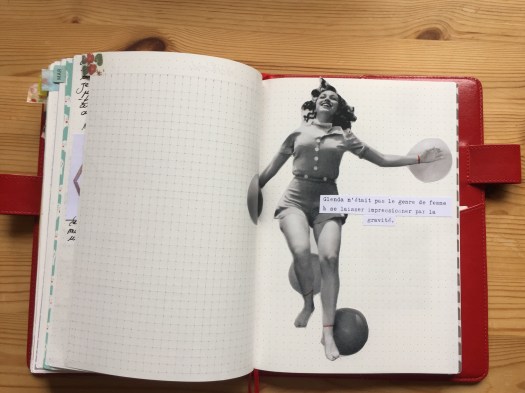 Glenda n'était pas le genre de femme
à se laisser impressionner par la
gravité.